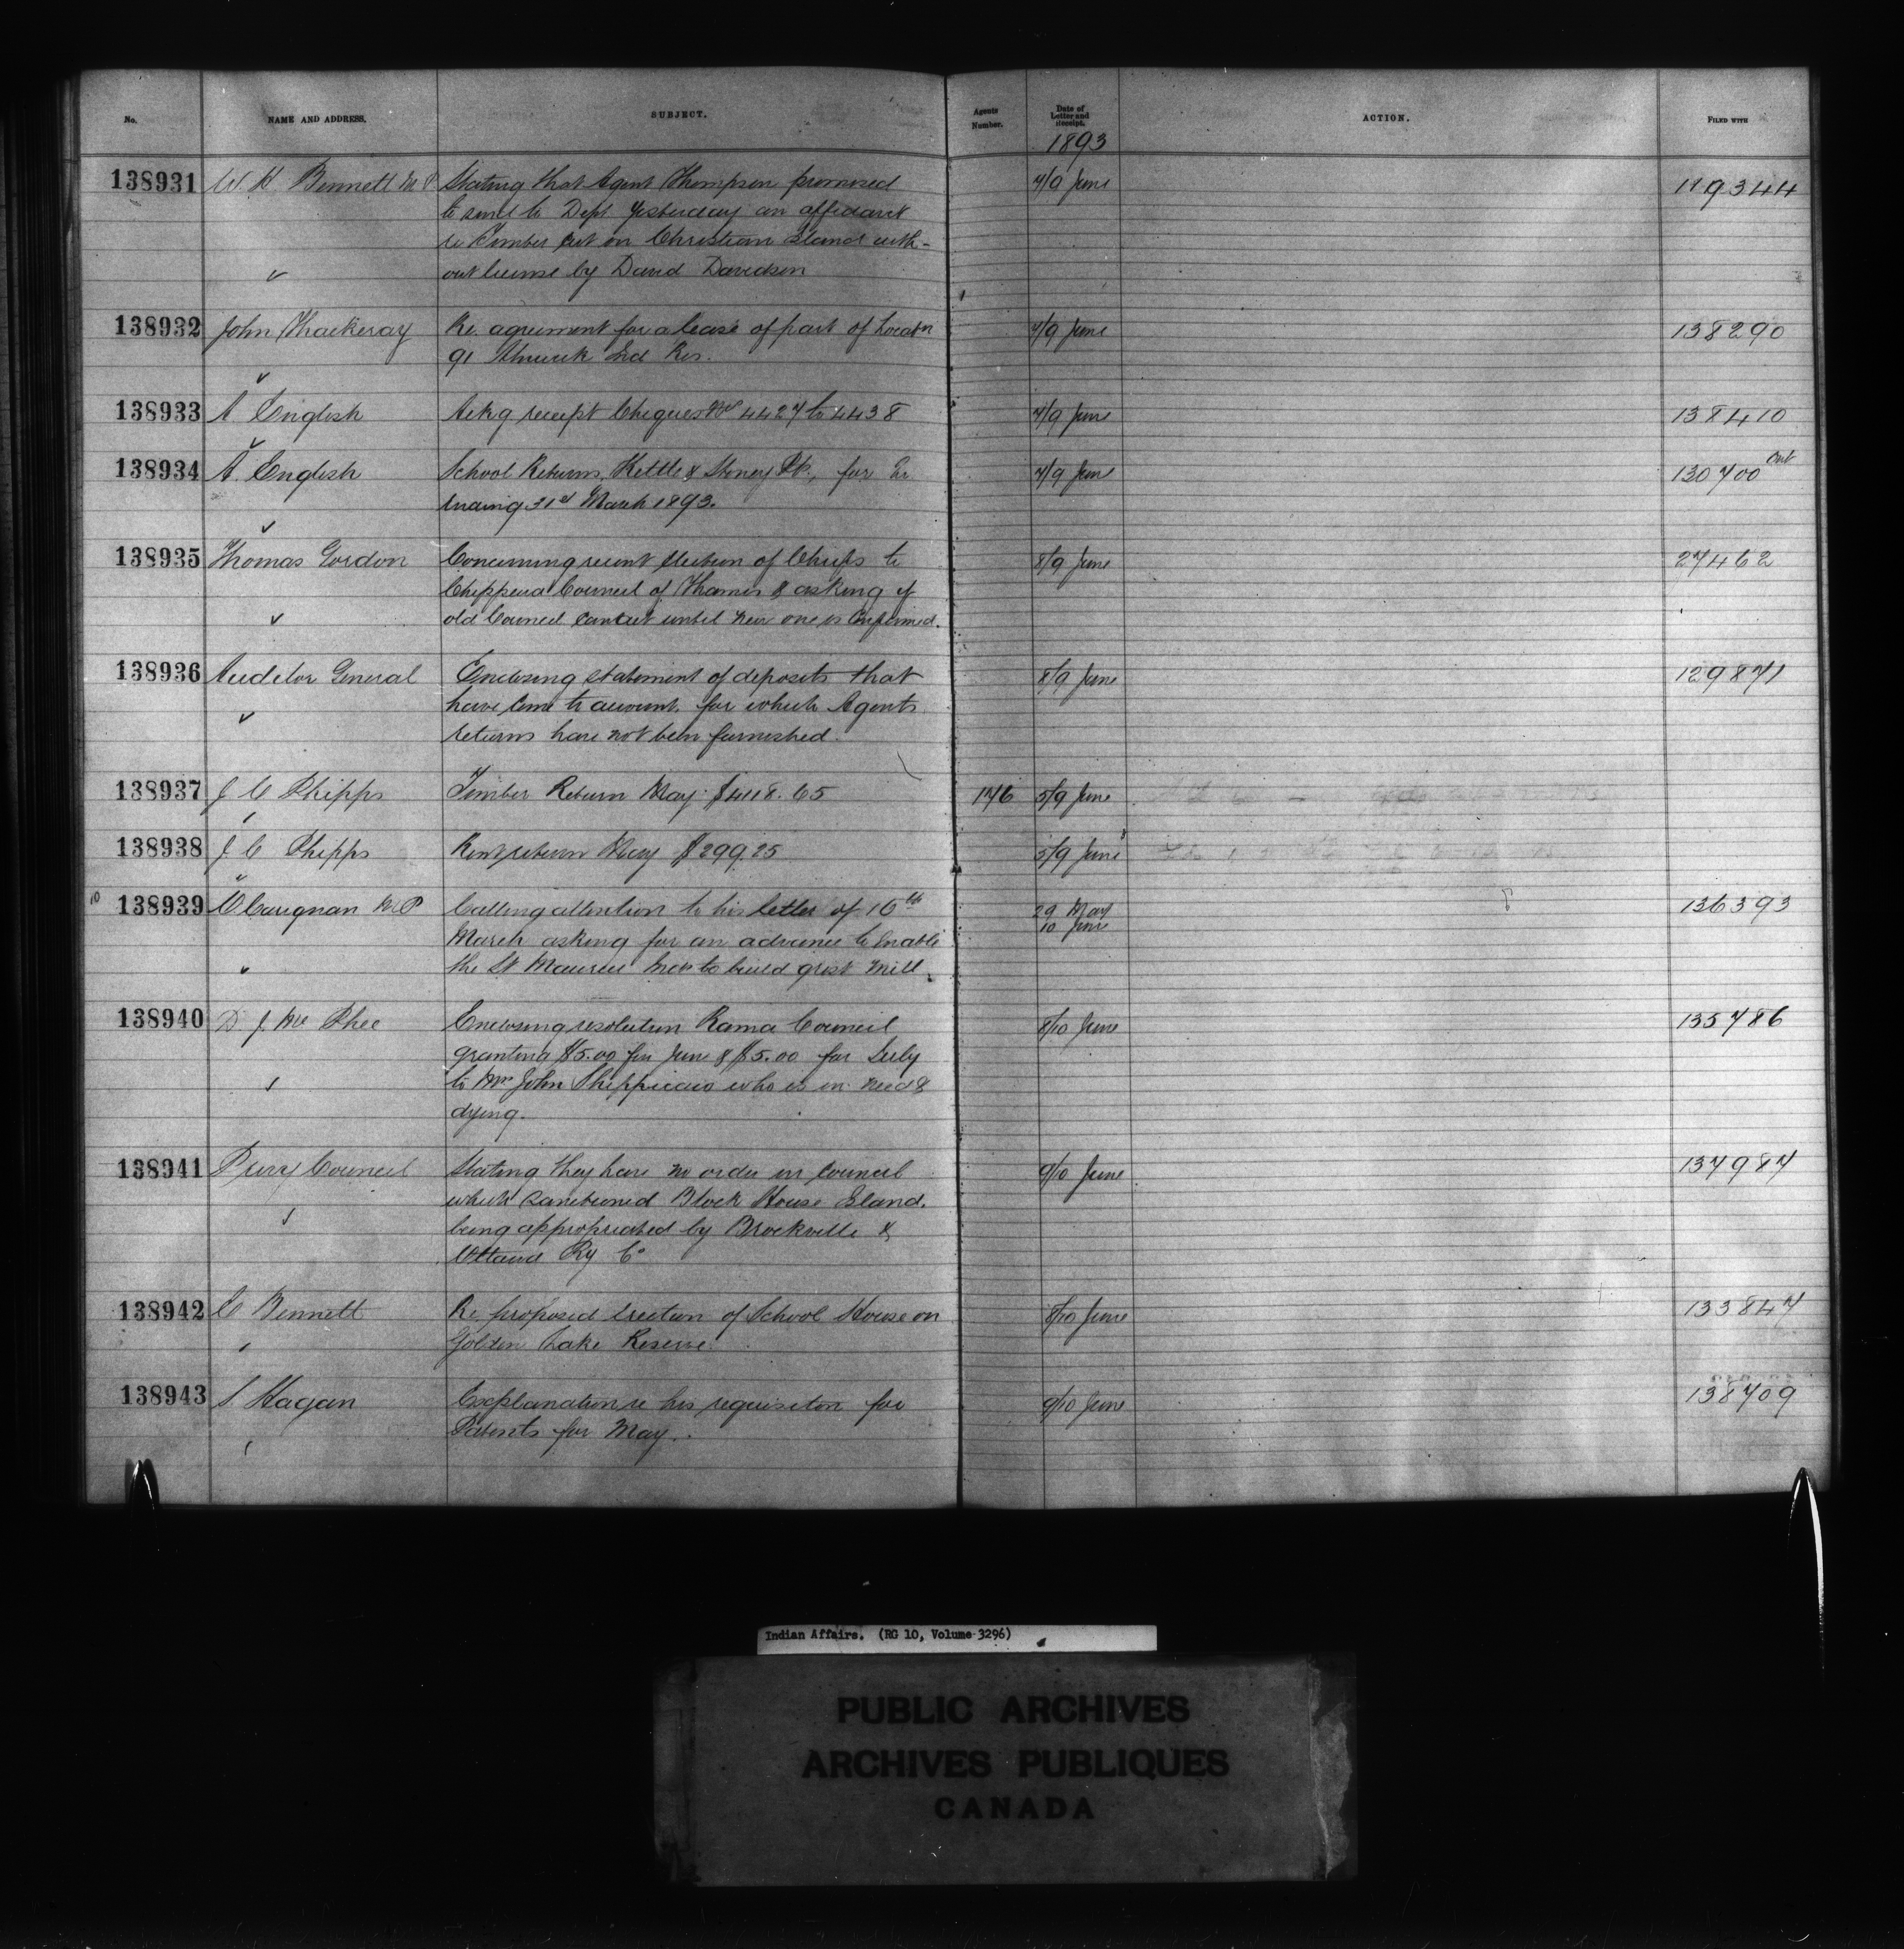 No. NAME AND ADDRESS. SUBJECT. Agents Number. Date of Letter and Receipt. ACTION. FILED WITH
1893
138931 W. H Bennett M P Stating that Agent Thompson promised 7/9 June 119344
to send to Dept yesterday an affidavit
re Timber cut on Christian Island with-
out license by David Davidson
138932 John Thackeray Re. agreement for a lease of part of Locatn 7/9 June 138290
91 Alnwick Ind Res.
138933 A English Ackg receipt Cheques Nos 4427 to 4438 7/9 June 138410
138934 A. English School Returns, Kettle & Stoney Pt., for Qr 7/9 June 130700
ending 31st March 1893.
138935 Thomas Gordon Concerning recent election of Chiefs to 8/9 June 27462
Chippewa Council of Thames & asking if
old Council can act until new one is Confirmed.
138936 Auditor General Enclosing statement of deposits that 8/9 June 129871
have come to account. for which Agents
returns have not been furnished.
138937 J C Phipps Timber Return May $4118.65 176 5/9 June
138938 J C Phipps Rent return May $299.25 5/9 June
10 138939 O Carignan M P Calling attention to his letter of 16th 29 May 136393
March asking for an advance to enable 10 June
the St Maurice Inds to build grist mill.
138940 D J Mc Phee Enclosing resolution Rama Council 8/10 June 135786
granting $5.00 for June & $5.00 for July
to Mrs John who is in need &
dying.
138941 Privy Council Stating they have no order in Council 9/10 June 137987
which sanctioned Block House Island.
being appropriated by Brockville &
Ottawa Ry Co
138942 E Bennett Re proposed erection of School House on 8/10 June 133847
Golden Lake Reserve.
138943 S Hagan Explanation re his requisiton for 9/10 June 138709
Patents for May.
Indian Affairs. (RG 10, Volume 3296)
PUBLIC ARCHIVES
ARCHIVES PUBLIQUES
CANADA